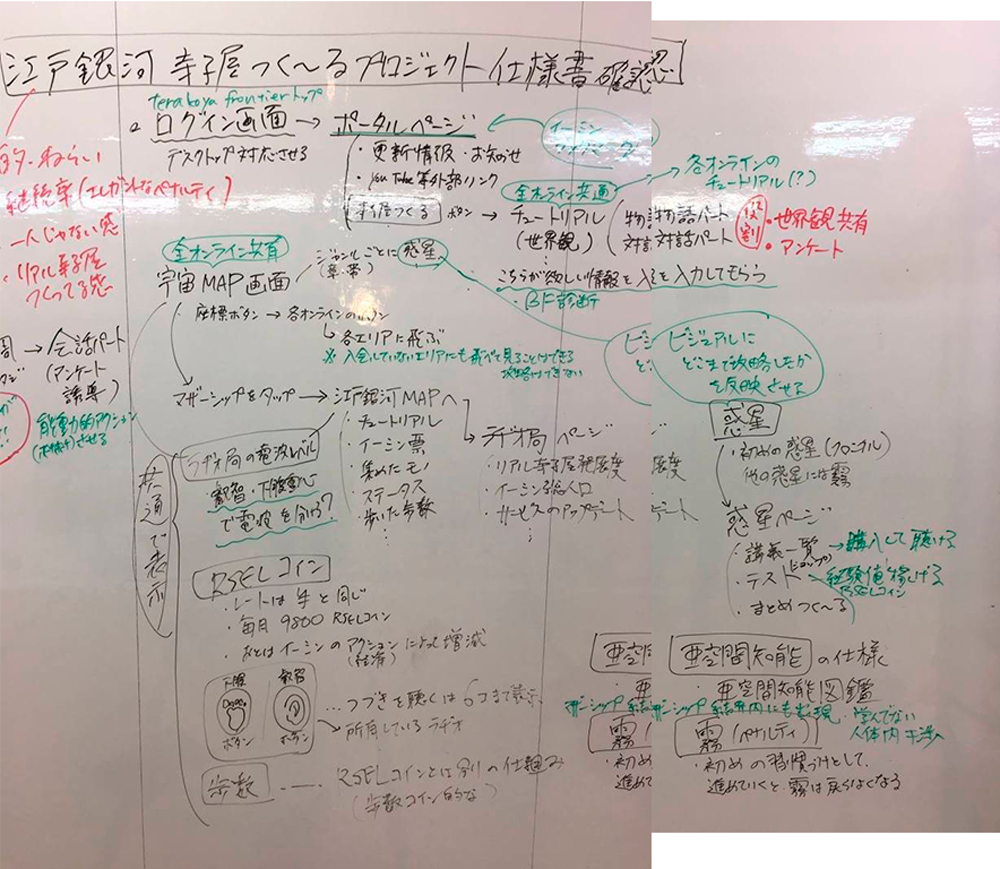 江戸銀河寺子屋つく〜るプロジェクト仕様書確認
terakoya frontierトップ
ログイン画面→ポータルページ
デスクトップ対応させる
・更新情報・お知らせ
・YouTube等外部リンク
寺子屋つくる ボタン→チュートリアル
(世界観)
イーミン
全オンライン共通
各オンラインの
チュートリアル(?)
物語パート
対話パート
役割
・世界観共有
・アンケート
こちらが欲しい情報を入を入力してもらう
・BF診断
的・ねらい
継続率(エレガントなペナルティ)
・一人じゃない感
・リアル寺子屋
つくってる感
→会話パート
(アンケート
誘導)
能動的アクション
させる
全オンライン共有
宇宙MAP画面
ジャンルごとに惑星へ
・座標ボタン→各オンラインのボタン
↳各エリアに飛ぶ
※入会していないエリアにも飛べて見ることはできる
攻略はできない
マザーシップをタップ→江戸銀河MAPへ
・チュートリアル
・イーミン票
・集めたモノ
・ステータス
・歩いた歩数
⋮
ラヂオ局ページ
・リアル寺子屋発展度
・イーミン総人口
・サービスのアップデート
⋮
共通で表示
ラヂオ局の電波レベル
・叡智・下腹重心
で電波を分ける?
RSELコイン
・レートは¥と同じ
・毎月9800RSELコイン
・あとはイーミンのアクションによって増減
(経済)
下腹
ボタン
叡智
ボタン
…つづきを聴くは6コまで表示
所有しているラヂオ
歩数
……RSELコインとは別の仕組み
(歩数コイン的な)
ビジュアルに
どこまで攻略したか
を反映させる
惑星
・初めの惑星(クロニクル)
他の惑星には霧
惑星ページ
・講義一覧→購入して聴ける
・テスト→経験値稼げる
RSELコイン
・まとめつく〜る
亜空間
亜空間知能の仕様
・亜空間知能図鑑
マザーシップ
結界内にも出現
・学んでない
人体内干渉へ
霧
・初め
進めて
霧(ペナルティ)
・初めの習慣づけとして、
進めていくと霧は戻らなくなる